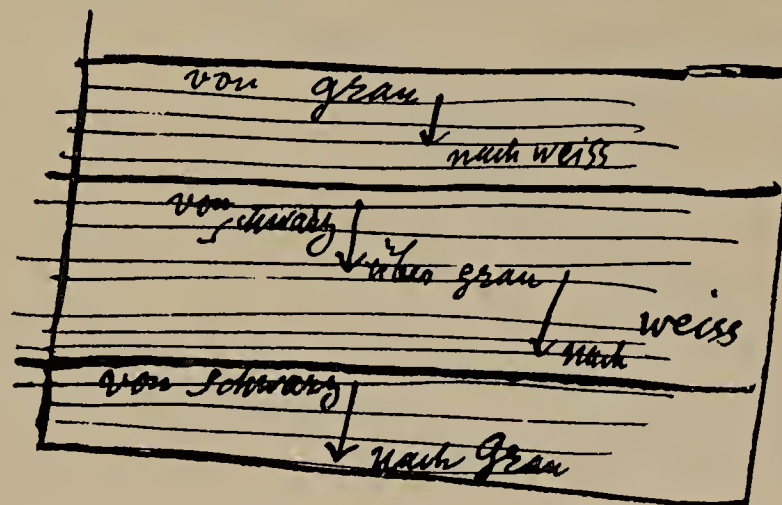 von grau
nach weiss
von
schwarz
über grau
weiss
nach
von Schwarz
nach Grau